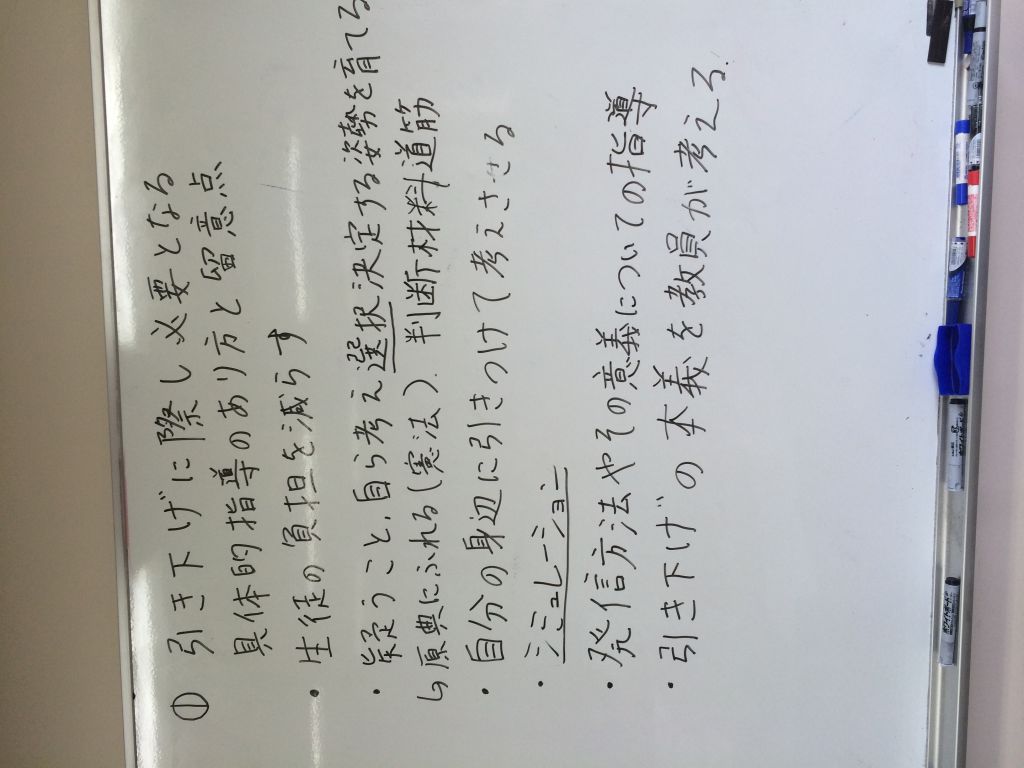 ① 引き下げに際し必要となる
具体的指導のあり方と留意点
・生徒の負担を減らす
・疑うこと、自ら考え選択決定する姿勢を育てる
↳原典にふれる(憲法).判断材料道筋
・自分の身辺に引きつけて考えさせる
・シミュレーション
・発信方法やその意義についての指導
・引き下げの本義を教員が考える.